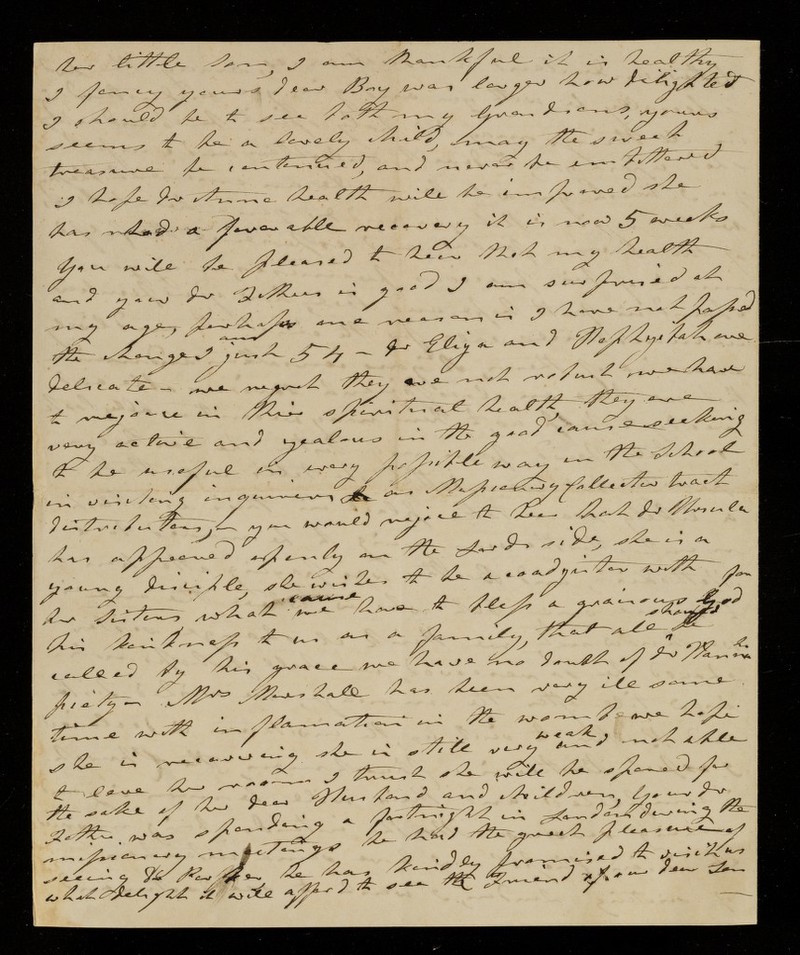 her little son, I am thankful it is healthy
I fancy yours dear Boy was larger how delighted
I should be to see both my Grandsons, yours
seems to be a lovely child, may the sweet
treasure be continued, and never be embittered
I hope dr Anna health will be improved she
has had a favorable recovery it is now 5 weeks
You will be pleased to hear that my health
and your dr Fathers is good I am surprised at
my age, perhaps one reason is I have not passed
the change I am just 54 - dr Eliza and Hephzibah are
delicate - we regret they are not robust we have
to rejoice in their spiritual health, they are
very active and zealous in the good cause seeking
to be useful in every possible way in the School
in visiting inquirers as Missionary Collector tract
distributors, - you would rejoice to hear that dr Ursula
has appeared openly on the Lords side, she is a
young disciple, she wishes to be a coadjutor with
her Sisters what cause we have to bless a graious God for
his kindness to us as a family, that all should be
called by his grace we have no doubt of dr Hannahs
piety - Mrs Marshall has been very ill some
time with inflamation in the womb we hope
she is recovering she is still very weak and not able
to leave her room I trust she will be spared for
the sake of her dear Husband and children, your dr
Father was spending a fortnight in London during the
missionary meetings he had the great pleasure of
seeing Dr Parker he has kindly promised to visit us
what delight it will afford to see the Friend of our dear Son